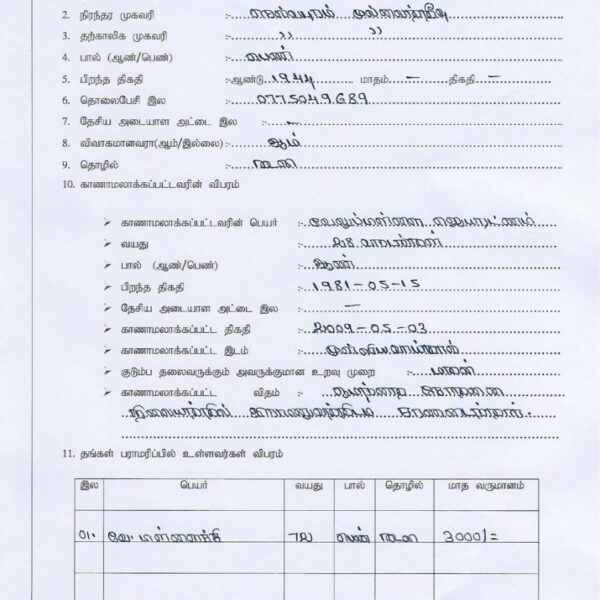 2. நிரந்தர முகவரி :- செல்வபுரம் முல்லைத்தீவு
3. தற்காலிக முகவரி :- ,, ,,
4. பால் (ஆண்/பெண்) :- பெண்
5. பிறந்த திகதி :-ஆண்டு 1944 மாதம் — திகதி —
6. தொலைபேசி இல :- 0775049689
7. தேசிய அடையாள அட்டை இல :- –
8. விவாகமானவரா(ஆம்/இல்லை) :- ஆம்
9. தொழில் :-
10. காணாமலாக்கப்பட்டவரின் விபரம்
➢ காணாமலாக்கப்பட்டவரின் பெயர் :-
➢ வயது :- 28
➢ பால் (ஆண்/பெண்) :- ஆண்
➢ பிறந்த திகதி :- 1981-05-15
➢ தேசிய அடையாள அட்டை இல :- —
➢ காணாமலாக்கப்பட்ட திகதி :- 2009-05-03
➢ காணாமலாக்கப்பட்ட இடம் :- முள்ளியவாய்க்கால்
➢ குடும்ப தலைவருக்கும் அவருக்குமான உறவு முறை :- மகன்
➢ காணாமலாக்கப்பட்ட விதம் :-
11. தங்கள் பராமரிப்பில் உள்ளவர்கள் விபரம்
இல பெயர் வயது பால் தொழில் மாத வருமானம்
01. வே. 72 பெண் 3000/=